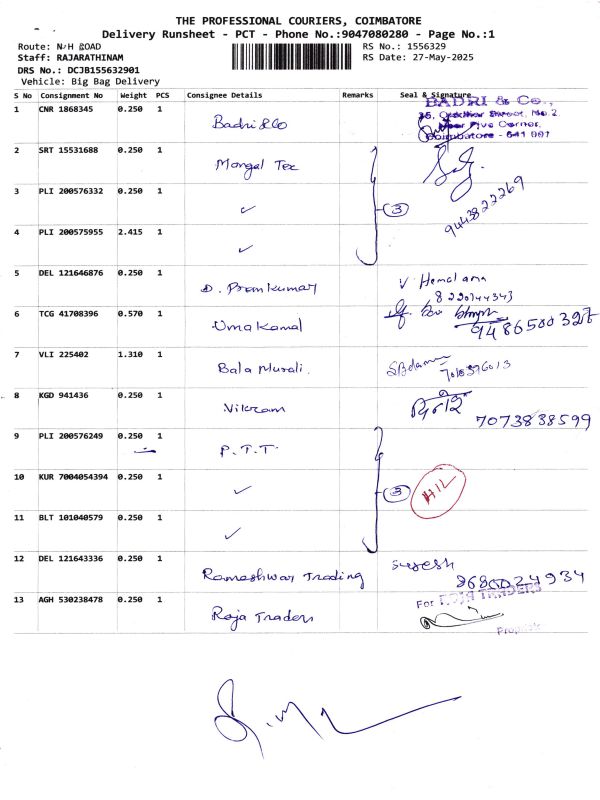 THE PROFESSIONAL COURIERS, COIMBATORE
Delivery Runsheet - PCT - Phone No.:9047080280 - Page No.:1
Route: N H ROAD
RS No.: 1556329
Staff: RAJARATHINAM
RS Date: 27-May-2025
DRS No.: DCJB155632901
Vehicle: Big Bag Delivery
S No Consignment No Weight PCS Consignee Details Remarks Seal & Signature
BADRI & Co.,
1 CNR 1868345 0.250 1 Badri & Co
Coimbatore - 641 001
2 SRT 15531688 0.250 1 Mangal Tex
3 PLI 200576332 0.250 1 ✓ 3 9443822269
4 PLI 200575955 2.415 1 ✓
5 DEL 121646876 0.250 1 D. Premkumar V Hemalana
8220144343
6 TCG 41708396 0.570 1 Uma Kamal
9486500327
7 VLI 225402 1.310 1 Bala Murali.
8 KGD 941436 0.250 1 Vikram
7073838599
9 PLI 200576249 0.250 1 P.T.T.
10 KUR 7004054394 0.250 1 ✓ 3 HIL
11 BLT 101040579 0.250 1 ✓
12 DEL 121643336 0.250 1 Rameshwar Trading Suresh
8680024934
13 AGH 530238478 0.250 1 Roja Traders
For ROJA TRADERS